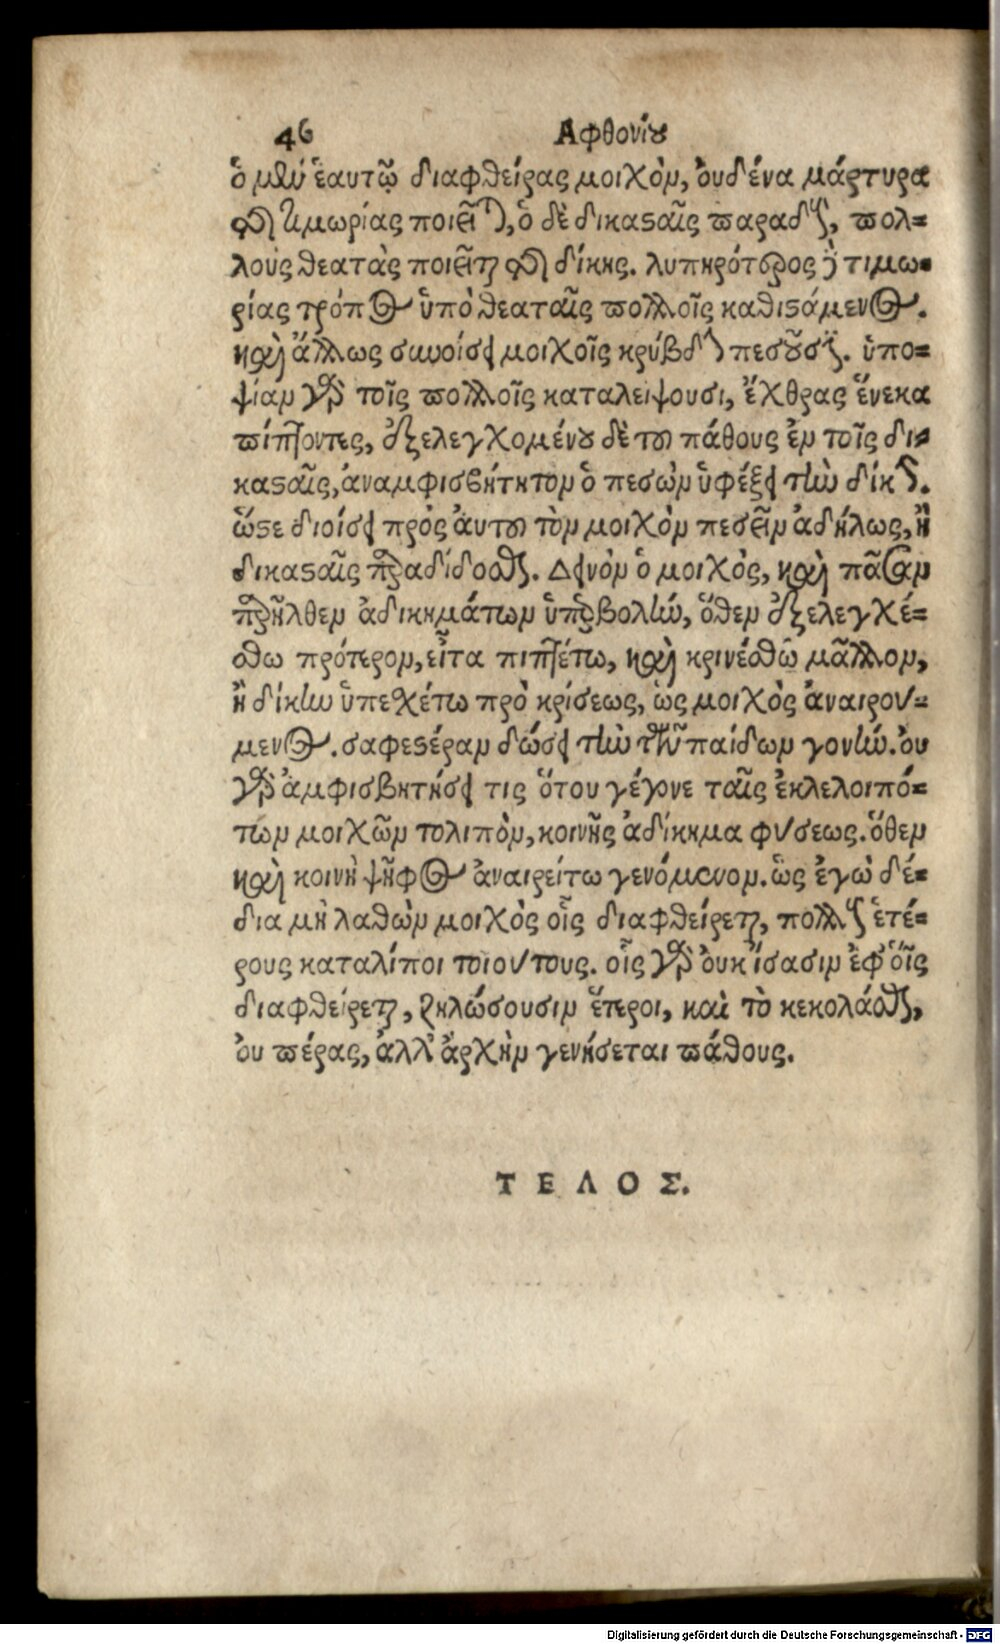 46 Αφθονίου
ὁ μὲν ἑαυτῷ διαφθείρας μοιχὸν, ὀυδένα μάρτυρα
τῆς τιμωρίας ποιεῖται, ὁ δὲ δικασταῖς παραδοὺς, πολ=
λοὺς θεατὰς ποιεῖται τῆς δίκης. λυπηρότερος δὲ τιμω=
ρίας τρόπος ὑπὸ θεαταῖς πολλοῖς καθιστάμενος.
καὶ ἄλλως συνοίσει μοιχοῖς κρύβδην πεσοῦσι. ὑπο=
ψίαν γὰρ τοῖς πολλοῖς καταλείψουσι, ἔχθρας ἕνεκα
πίπτοντες, ἐξελεγχομένου δὲ του πάθους ἐν τοῖς δι=
κασταῖς, ἀναμφισβήτητον ὁ πεσὼν ὑφέξει τὴν δίκην.
ὥστε διοίσει πρὸς ἀυτου τὸν μοιχὸν πεσεῖν ἀδήλως, ἢ
δικασταῖς παραδίδοσθαι. Δεινὸν ὁ μοιχὸς, καὶ πᾶσαν
παρῆλθεν ἀδικημάτων ὑπερβολὴν, ὅθεν ἐξελεγχέ=
σθω πρότερον, εἶτα πιπτέτω, καὶ κρινέσθω μᾶλλον,
ἢ δίκην ὑπεχέτω πρὸ κρίσεως, ὡς μοιχὸς ἀναιρού=
μενος. σαφεστέραν δώσει τὴν τῶν παίδων γονήν. ὀυ
γὰρ ἀμφισβητήσει τις ὅτου γέγονε ταῖς ἐκλελοιπό=
των μοιχῶν τολιπὸν, κοινῆς ἀδίκημα φύσεως. ὅθεν
καὶ κοινῇ ψῆφος ἀναιρείτω γενόμενον. ὡς ἐγὼ δέ=
δια μὴ λαθὼν μοιχὸς οἷς διαφθείρεται, πολλοὺς ἑτέ=
ρους καταλίποι τοιούτους. οἷς γὰρ ὀυκ ἴσασιν ἐφ' οἷς
διαφθείρεται, ζηλώσουσιν ἕτεροι, καὶ τὸ κεκολάσθαι,
ὀυ πέρας, ἀλλ' ἀρχὴν γενήσεται πάθους.
ΤΕΛΟΣ.
Digitalisierung gefördert durch die Deutsche Forschungsgemeinschaft - DFG